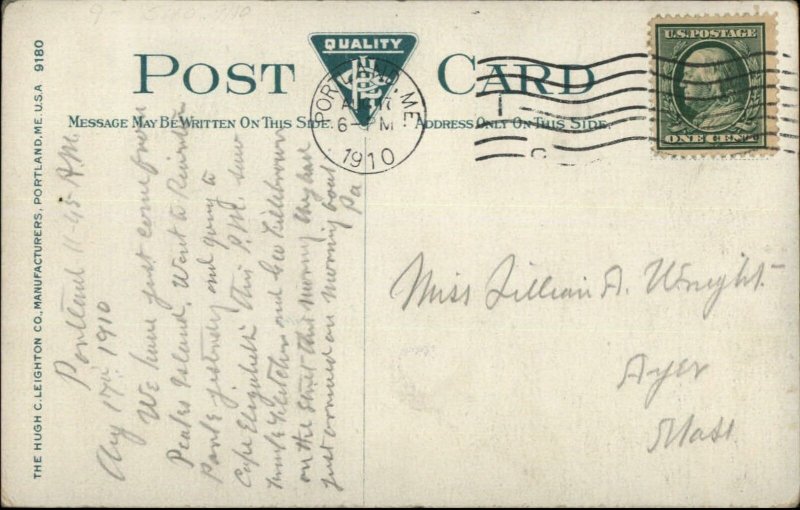 POST CARD
QUALITY
MESSAGE MAY BE WRITTEN ON THIS SIDE.
ADDRESS ONLY ON THIS SIDE.
PORTLAND, ME.
6-PM
1910
U.S. POSTAGE
ONE CENT
THE HUGH C. LEIGHTON CO., MANUFACTURERS, PORTLAND, ME. U.S.A. 9180
Portland 11-45 A.M.
Aug 17th 1910
We have just come from
Peaks Island. Went to Riverton
Park yesterday and going to
Cape Elizabeth this P.M. saw
Frank Fletcher and Geo
on the street this morning they had
just arrived on morning boat
Pa
Miss Lillian A. Wright
Ayer
Mass